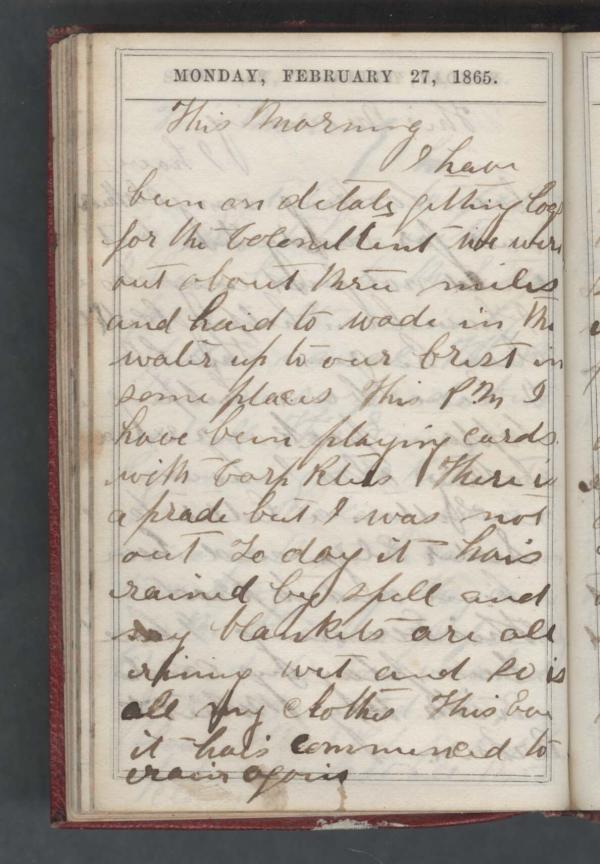 MONDAY, FEBRUARY 27, 1865.
This Morning
I have
been on detals getting logs
for the Colonel tent we were
out about three miles
and haid to wade in the
water up to our brest in
some places This PM I
have been playing cards
with Corp There is
a prade but I was not
out To day it hais
rained by spell and
my blankets are all
wet and so is
all my clothes This Eve
it hais commenced to
again